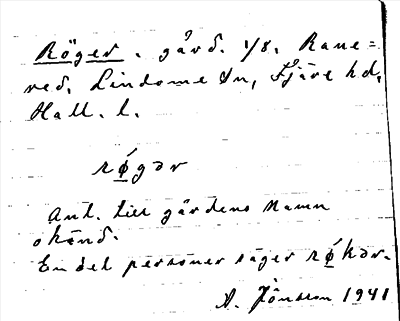 Röger. gård. 1/8, Rane=
red, Lindome sn, Fjäre hd,
Hall. l.
rǿgər
Anl. till gårdens namn
okänd.
En del personer säger rǿkər.
A. Jönsson 1941